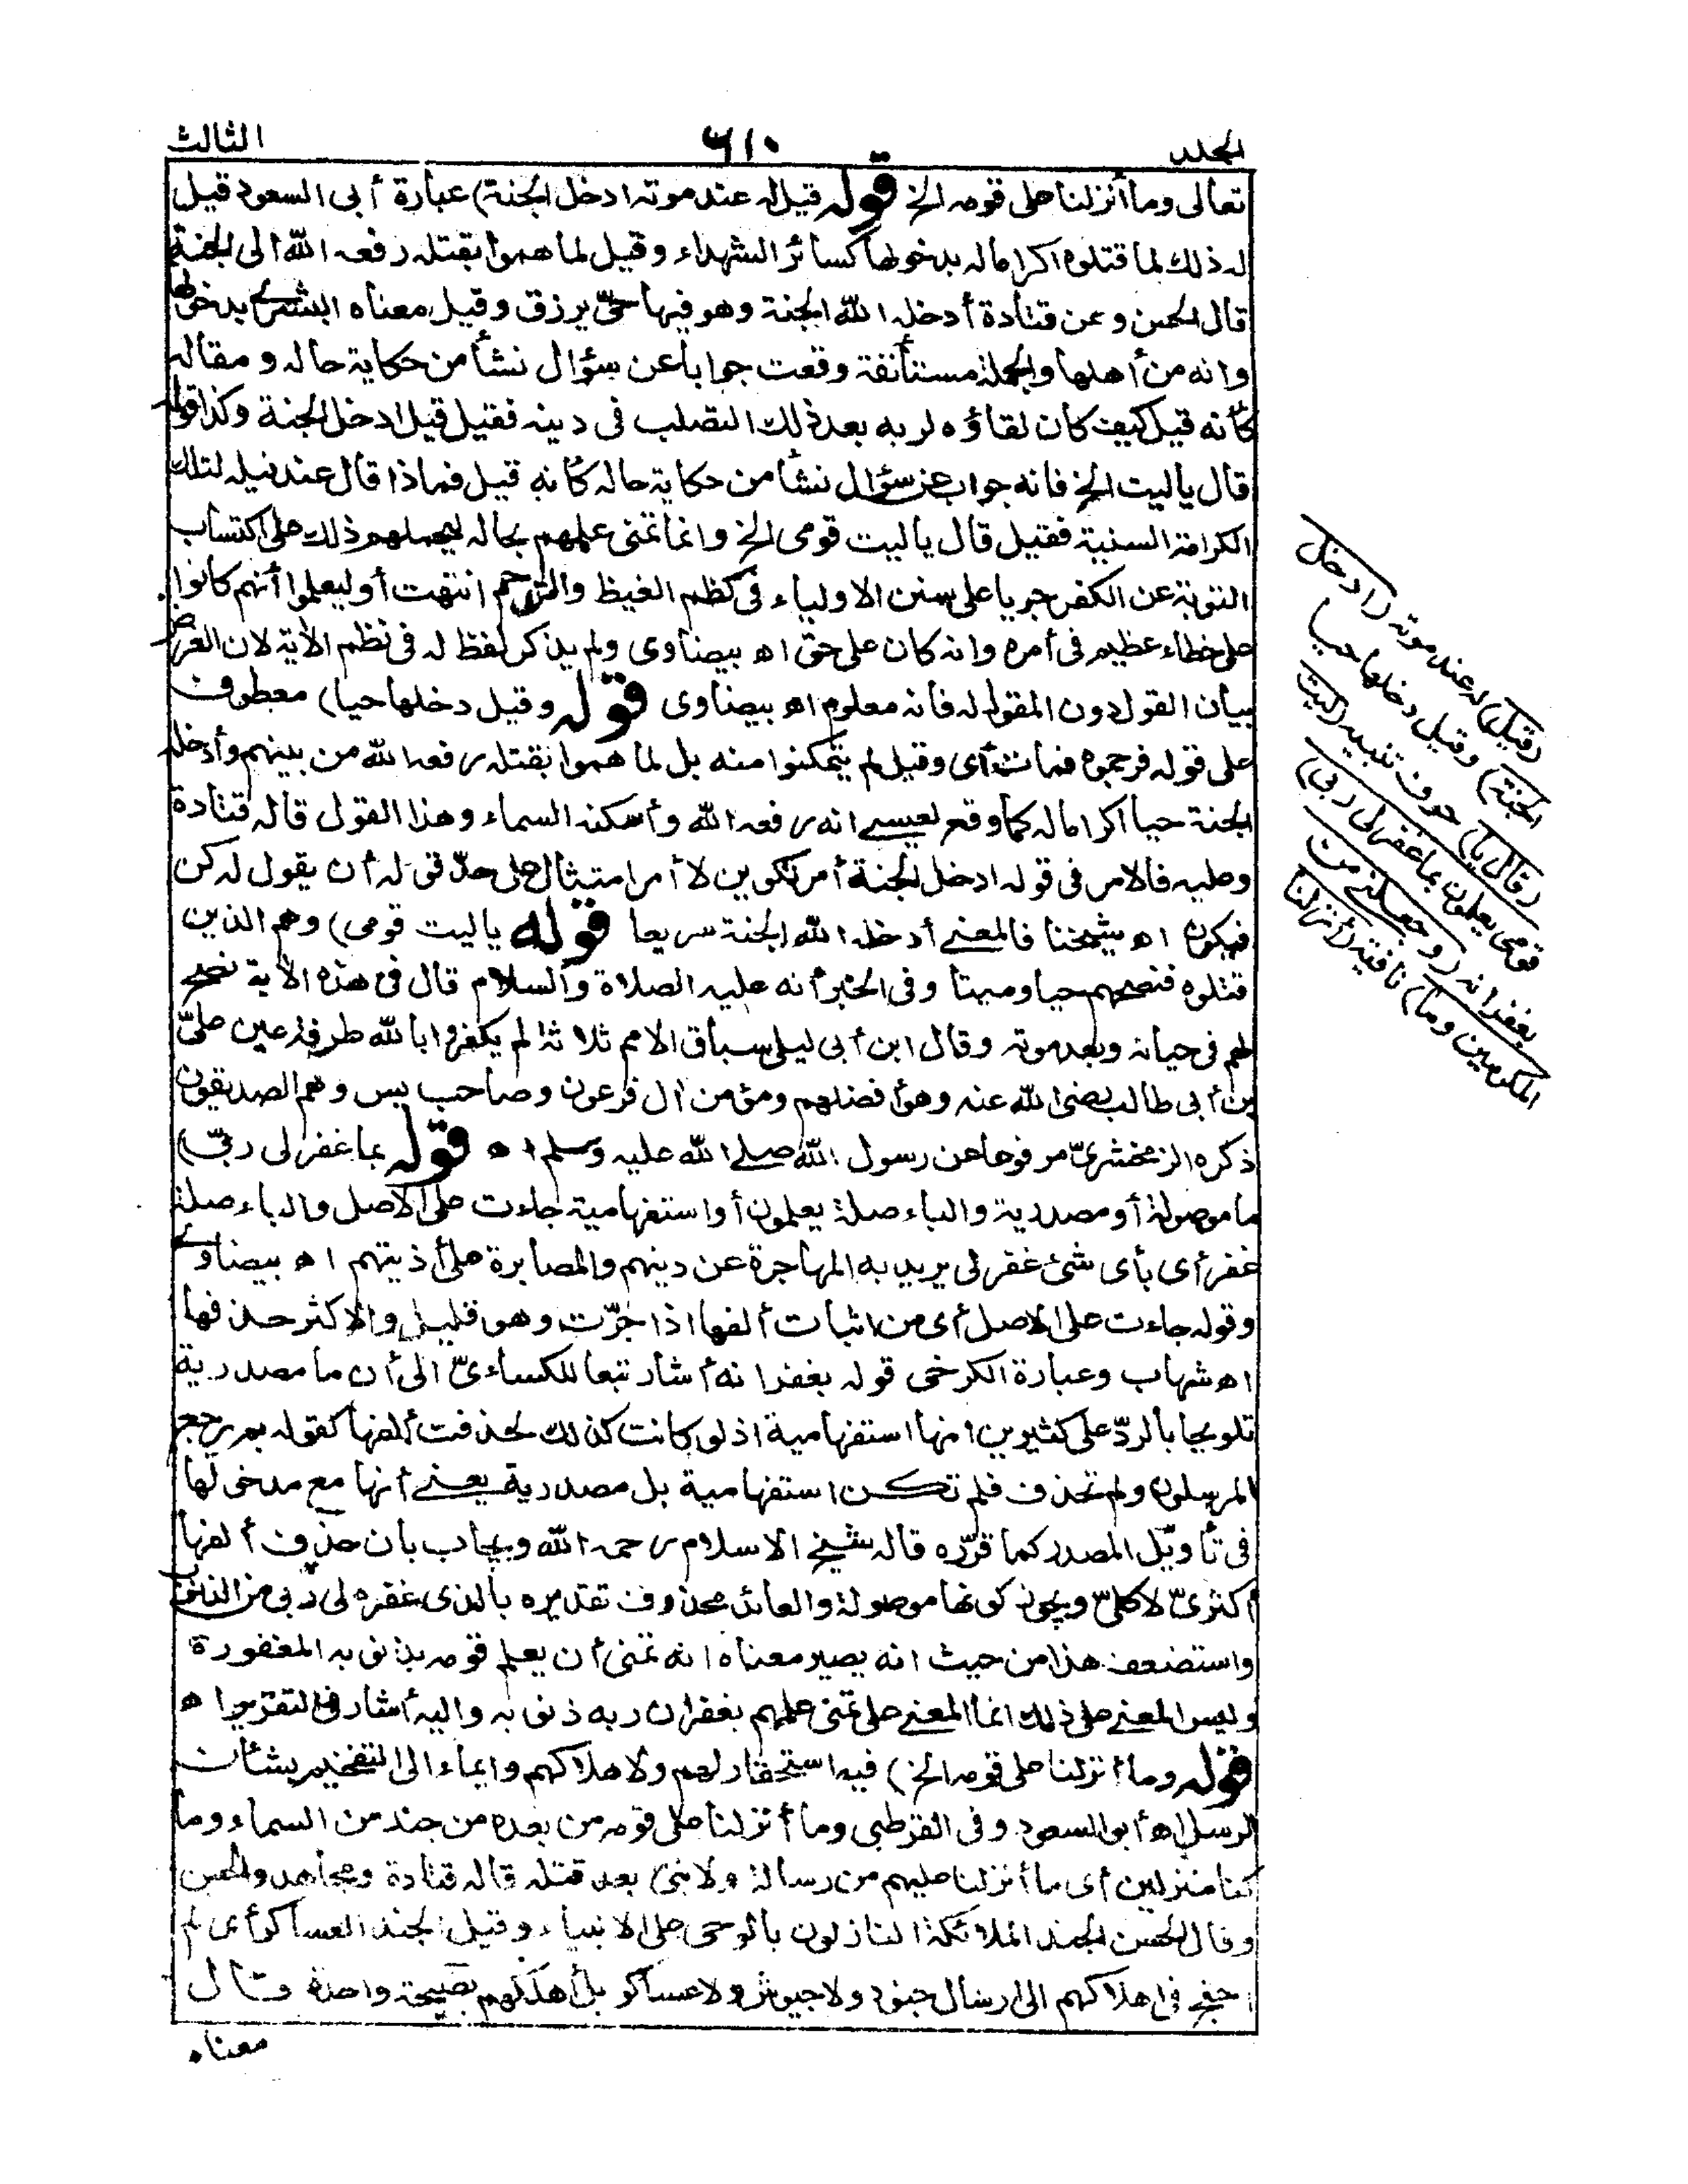 المجلد ٦١٠ الثالث
تعالى وما أنزلنا على قومه الخ قوله قيل له عند موته ادخل الجنة) عبارة أبى السعود قيل
له ذلك لما قتلوه اكراما له بدخولها كسائر الشهداء وقيل لما هموا بقتله رفعه الله الى الجنة
قال الحسن وعن قتادة أدخله الله الجنة وهو فيها حىّ يرزق وقيل معناه البشرى بدخولها
وانه من أهلها والجملة مستأنفة وقعت جوابا عن سؤال نشأ من حكاية حاله ومقاله
كأنه قيل كيف كان لقاؤه لربه بعد ذلك التصلب فى دينه فقيل قيل ادخل الجنة وكذا قوله
قال ياليت الخ فانه جواب عن سؤال نشأ من حكاية حاله كأنه قيل فماذا قال عند نيله لتلك
الكرامة السنية فقيل قال ياليت قومى الخ وانما تمنى علمهم بحاله ليحملهم ذلك على اكتساب
التوبة عن الكفر جريا على سنن الاولياء فى كظم الغيظ والترحم انتهت أو ليعلموا أنهم كانوا
على خطاء عظيم فى أمره وانه كان على حق اه بيضاوى ولم يذكر لفظ له فى نظم الآية لان الغرض
بيان القول دون المقول له فانه معلوم اه بيضاوى قوله وقيل دخلها حيا) معطوف
على قوله فرجموه فمات أى وقيل لم يتمكنوا منه بل لما هموا بقتله رفعه الله من بينهم وأدخله
الجنة حيا اكراما له كما وقع لعيسى انه رفعه الله وأسكنه السماء وهذا القول قاله قتادة
وعليه فالامر فى قوله ادخل الجنة أمر تكوين لا أمر امتثال على حدّ قوله أن يقول له كن
فيكون اه شيخنا فالمعنى أدخله الله الجنة سريعا قوله ياليت قومى) وهم الذين
قتلوه فنصحهم حيا وميتا وفى الخبر أنه عليه الصلاة والسلام قال فى هذه الآية نصح
لهم فى حياته وبعد موته وقال ابن أبى ليلى سباق الامم ثلاثة لم يكفروا بالله طرفة عين علىّ
بن أبى طالب رضى الله عنه وهو أفضلهم ومؤمن آل فرعون وصاحب يس وهم الصديقون
ذكره الزمخشرىّ مرفوعا عن رسول الله صلى الله عليه وسلم اه قوله بما غفر لى ربّى)
ما موصولة أو مصدرية والباء صلة يعلمون أو استفهامية جاءت على الاصل والباء صلة
غفر أى بأى شئ غفر لى يريد به المهاجرة عن دينهم والمصابرة على أذيتهم اه بيضاوى
وقوله جاءت على الاصل أى من اثبات ألفها اذا جرّت وهو قليل والاكثر حذفها
اه شهاب وعبارة الكرخى قوله بغفرانه أشار تبعا للكساءىّ الى أن ما مصدرية
تلويحا بالردّ على كثيرين انها استفهامية اذ لو كانت كذلك لحذفت ألفها كقوله بم يرجع
المرسلون ولم تحذف فلم تكن استفهامية بل مصدرية يعنى أنها مع مدخولها
فى تأويل المصدر كما قرّره قاله شيخ الاسلام رحمه الله ويجاب بان حذف ألفها
أكثرىّ لا كلىّ ويجوز كونها موصولة والعائد محذوف تقديره بالذى غفره لى ربى من الذنوب
واستضعف هذا من حيث انه يصير معناه انه تمنى أن يعلم قومه بذنوبه المغفورة
وليس المعنى على ذلك انما المعنى على تمنى علمهم بغفران ربه ذنوبه واليه أشار فى التقرير اه
قوله وما أنزلنا على قومه الخ) فيه استحقار لهم ولاهلاكهم وايماء الى التفخيم بشأن
الرسل اه أبو السعود وفى القرطبى وما أنزلنا على قومه من بعده من جند من السماء وما
كنا منزلين أى ما أنزلنا عليهم من رسالة ولا نبى بعد قتله قاله قتادة ومجاهد والحسن
وقال الحسن الجند الملائكة النازلون بالوحى على الانبياء وقيل الجند العساكر أى لم
فى اهلاكهم الى ارسال جنود ولا جيوش ولا عساكر بل أهلكهم بصيحة واحدة وقال
معناه
(قيل) له عند موته (ادخل
الجنة) وقيل دخلها حيا
(قال يا) حرف تنبيه (ليت
قومى يعلمون بما غفر لى ربى)
بغفرانه (وجعلنى من
المكرمين وما) نافية (أنزلنا